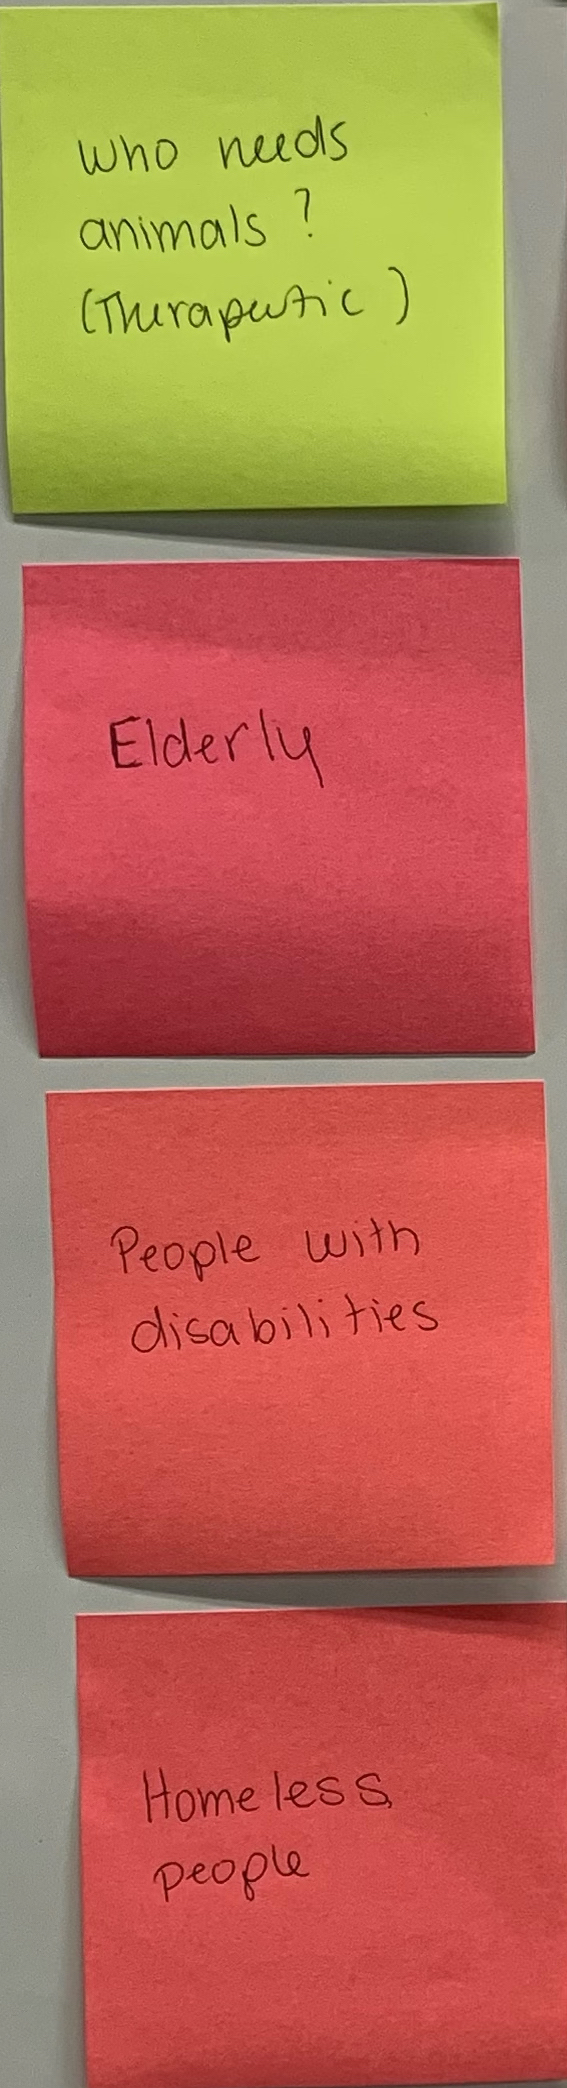 Who needs
animals ?
(Therapeutic )
Elderly
People with
disabilities
Homeless
people